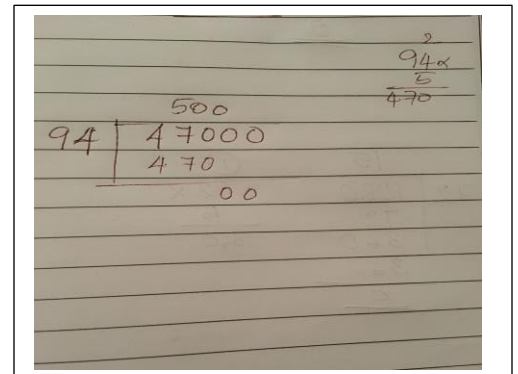 2
94×
5
470
500
94 47000
470
00